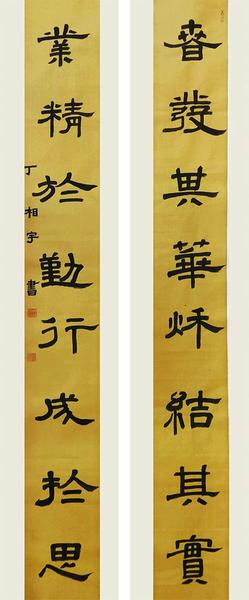 春發其華秋結其實
業精於勤行成於思
丁相宇書